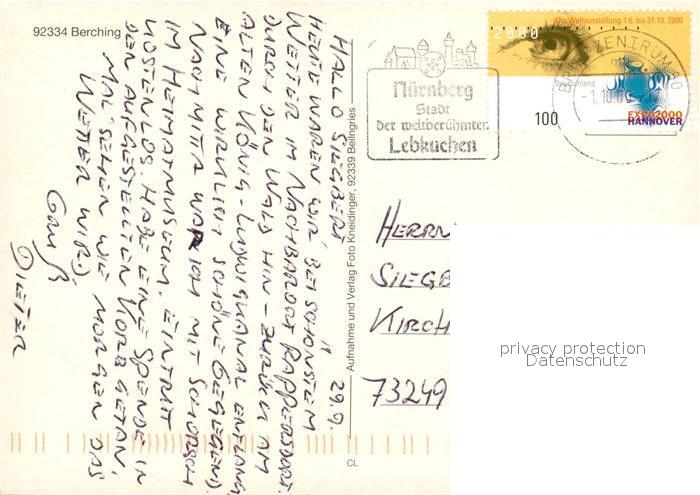 92334 Berching
29.9.
HALLO SIEGBERT
HEUTE WAREN WIR BEI SCHÖNSTEM
WETTER IM NACHBARORT RAPPERSDORF.
DURCH DEN WALD HIN – ZURÜCK AM
ALTEN KÖNIG-LUDWIGKANAL ENTLANG
EINE WIRKLICH SCHÖNE GEGEGEND).
NACHMITTA WAR ICH MIT SCHORSCH
IM HEIMATMUSEUM. EINTRITT
KOSTENLOS. HABE EINE SPENDE IN
DEN AUFGESTELLTEN KORB GETAN.
MAL SEHEN WIE MORGEN DAS
WETTER WIRD)
Gruß
DIETER
Aufnahme und Verlag Foto Kneidinger, 92339 Beilngries
CL
Nürnberg
Stadt
der weltberühmten
Lebkuchen
Die Weltausstellung 1.6. bis 31.10. 2000
2000
Deutschland
100
EXPO2000
HANNOVER
BRIEFZENTRUM 90
-1.10.00
HERRN
SIEGB
KIRCH
73249
privacy protection
Datenschutz